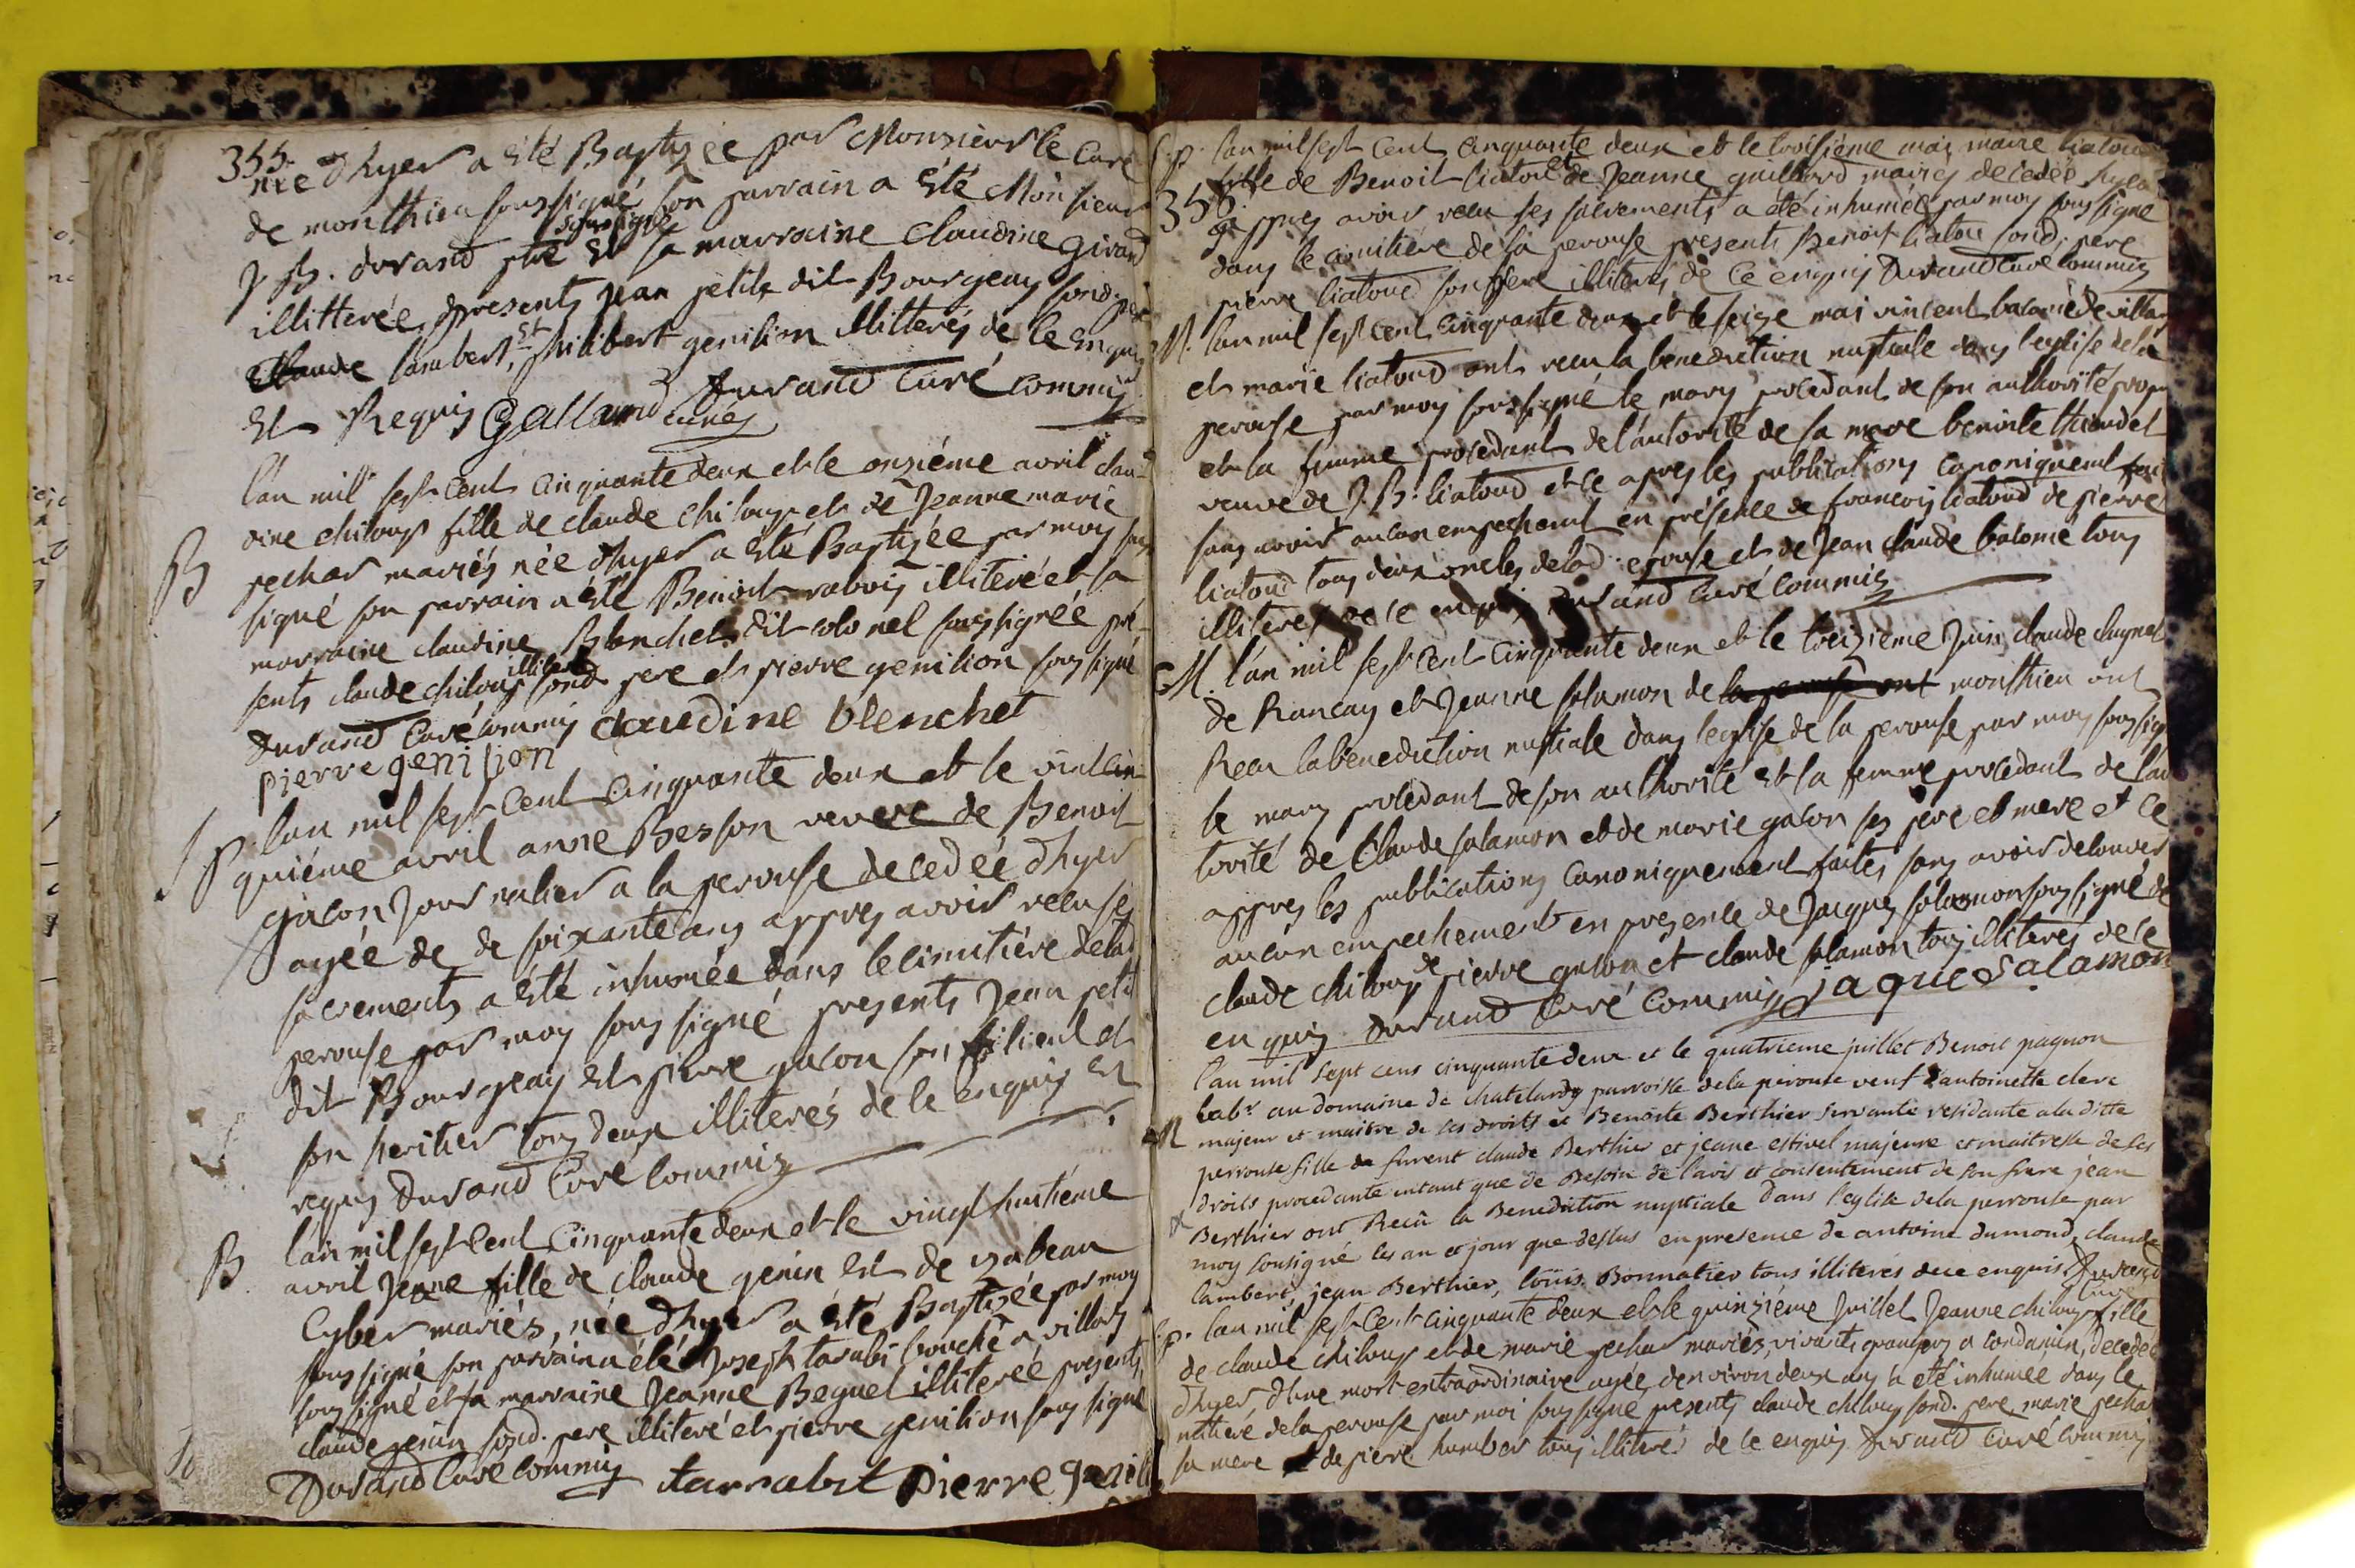 355.
née d'hyer a été Baptizée par Monsieur le Curé
de monthieu soussigné son parrain a été Monsieur
J B. durand ptre soussigné Et sa marraine claudine girand
illitterée, presents jean petit dit Bourgeay sond. pere
Claude lambert, Et philibert genition illitterés de ce enquis
Et Requis Galland curé durand Curé commis
B
l'an mil sept cent cinquante deux et le onziéme avril clau-
dine chiloup fille de claude chiloup et de Jeanne marie
pechar mariés née d'hyer a été Baptizée par moy sous
signé son parrain a été Benoit rabois illiteré et sa
marraine claudine Blenchet dit colonel soussignée pré-
sents claude chiloup illiteré sond pere et pierre genition sous signé
Durand Curé commis claudine blenchet
pierre genition
S P. l'an mil sept cent cinquante deux et le vint cin-
quiéme avril anne Besson veuve de Benoit
gacon Journalier a la perouse decedée d'hyer
agée de de soixante ans appres avoir recu ses
sacrements a été inhumée dans le cimitiére de la
perouse par moy sous signé presents Jean petit
dit Bourgeay Et pierre gacon son filieul et
son heritier tous deux illiterés de ce enquis Et
requis Durand Curé Commis
B. l'an mil sept cent cinquante deux et le vingt huitiéme
avril Jeanne fille de claude genin Et de isabeau
Cyber mariés, née d'hyer a été Baptizée par moy
sous signé son parrain a été Joseph tarabi bouché a villars
sous signé et sa marraine Jeanne Beguet illiterée presents
claude genin sond. pere illiteré et pierre genition sous signé
Durand Curé commis tarrabit pierre genit
S. p. l'an mil sept cent cinquante deux et le troisiéme mai marie liatoud
356.
fille de Benoit liatoud et de Jeanne guillard mariés decedée hyer
appres avoir recu ses sacrements a été inhumée par moy sous signé
dans le cimitiére de la perouse presents Benoit liatou sond. pere
pierre liatoud son frere illiterés de ce enquis Durand Curé commis
M. l'an mil sept cent cinquante deux et le seize mai vincent balomé de villars
et marie liatoud ont recu la benediction nuptiale dans l'eglise de la
perouse par moy sous signé le mary procedant de son authorité propre
et la femme procedant de l'autorité de sa mere benoite thiaudet
veuve de J. B. liatoud et ce apres les publications canoniquemt
sans avoir aucun empechemt en présence de francois liatoud de pierre
liatoud tous deux oncles de lad. epouse et de Jean claude balomé tous
illiteres de ce enquis durand Curé Commis
M. l'an mil sept cent cinquante deux et le treizieme Juin claude clugnet
de Rancay et Jeanne salamon de la perouse ont monthieu ont
Recu la benediction nuptiale dans l'eglise de la perouse par moy sous signé
le mary procedant de son authorité et la femme procedant de l'au
torité de Claude salamon et de marie gacon ses pere et mere et ce
appres les publications canoniquement faites sans avoir decouver
aucun empechement en presence de Jacques salamon sous signé de
claude chiloup de pierre gacon et claude salamon tous illiterés de ce
enquis durand Curé Commis jaque Salamon
l'an mil sept cens cinquante deux et le quatrieme juillet Benoit pagnon
labr au domaine de chatelardy parroisse de la perouse veuf d'antoinette clerc
M majeur et maitre de ses droits et Benoite Berthier servante residante a la ditte
perrouse fille de furent claude Berthier et jeane estivel majeure et maitresse de ses
droits procedante entant que de Besoin de l'avis et consentement de son frere jean
Berthier ont Recû la Benediction nuptiale dans l'eglise de la perrouse par
moy sousigné les an et jour que dessus en presence de antoine dumond, claude
lambert, jean Berthier, loüis Bonnatier tous illiterés de ce enquis Durand
Curé
S. p. l'an mil sept cent cinquante deux et le quinziéme Juillet Jeanne chiloup fille
de claude chiloup et de marie pechar mariés, vivants grangers a condamin, decedée
d'hyer, d'une mort extraordinaire agée d'environ deux ans a été inhumée dans le
mitiére de la perouse par moi sous signé presents claude chiloup sond. pere marie pechar
sa mere et de pierre humber tous illiterés de ce enquis Durand Curé commis